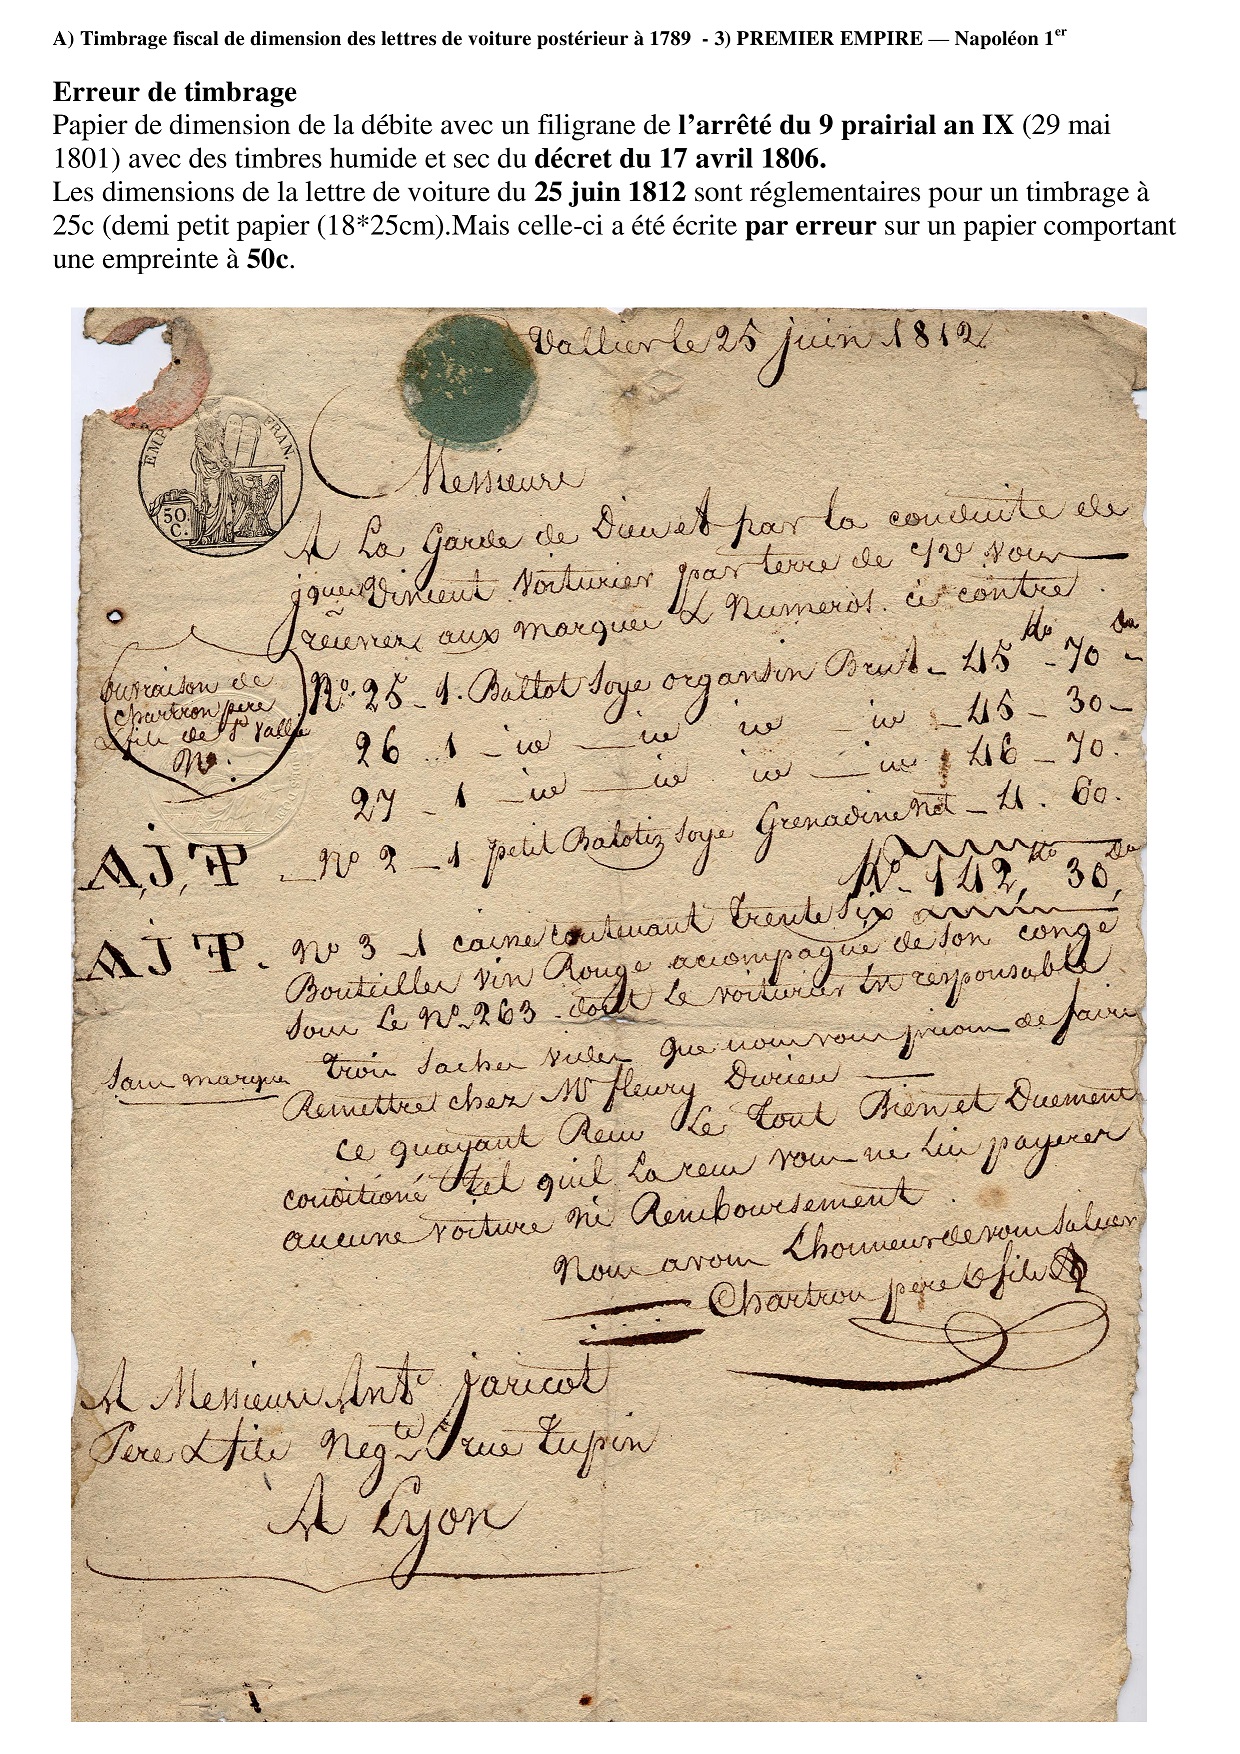 A) Timbrage fiscal de dimension des lettres de voiture postérieur à 1789 - 3) PREMIER EMPIRE — Napoléon 1er
Erreur de timbrage
Papier de dimension de la débite avec un filigrane de l’arrêté du 9 prairial an IX (29 mai
1801) avec des timbres humide et sec du décret du 17 avril 1806.
Les dimensions de la lettre de voiture du 25 juin 1812 sont réglementaires pour un timbrage à
25c (demi petit papier (18*25cm).Mais celle-ci a été écrite par erreur sur un papier comportant
une empreinte à 50c.
Vallier le 25 juin 1812
EMP FRAN.
50
C.
Messieurs
A La Garde de Dieu et par la conduite de
Vincent Voiturier par terre de
aux marques & Numeros. ci contre
Livraison de
Chartron pere
& fils de St Vallier
No. 25 - 1. Ballot Soye organsin Brut - 45 Ko - 70 Da -
26 1 - id id id id - 45 - 30 -
27 - 1 - id id id id 46 - 70.
AJP - No 2 - 1 petit Balotin Soye Grenadine Net - 4. 60.
Ko - 142 Ko 30 Da
AJP. No 3 - 1 caisse contenant trente Six
Bouteilles vin Rouge accompagné de son congé
sous Le No. 263 - dont Le voiturier en responsable
Sans marque trois saches vides que nous vous prions de faire
Remettre chez Mr fleury Durieu
ce quayant Recu Le tout Bien et Duement
conditioné tel quil La recu vous ne Lui payerez
aucune voiture ni Remboursement.
Nous avons Lhonneur de vous Saluer
Chartron pere & fils
A Messieurs Ante jaricot
Pere & fils Negts rue Tupin
A Lyon